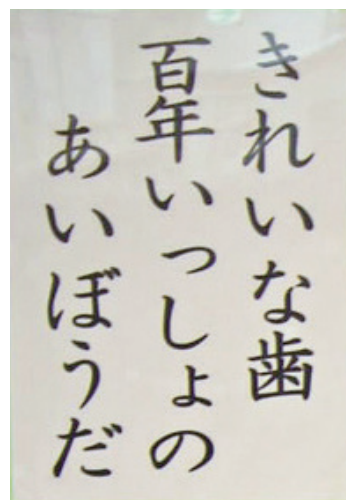 きれいな歯
百年いっしょの
あいぼうだ